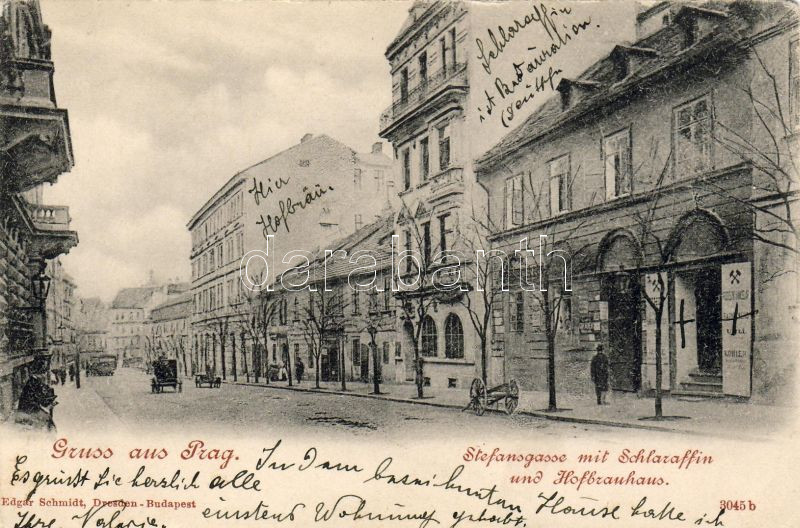 Schlaraffin
ist Restauration.
Hier
Hofbräu.
darabanth
KOHLEN
Gruss aus Prag.
Stefansgasse mit Schlaraffin
und Hofbrauhaus.
In dem bezeichneten Hause hatte ich
Es grüsst Sie herzlich alle
einstens Wohnung gehabt
Ihre Valerie
Edgar Schmidt, Dresden-Budapest
3045 b